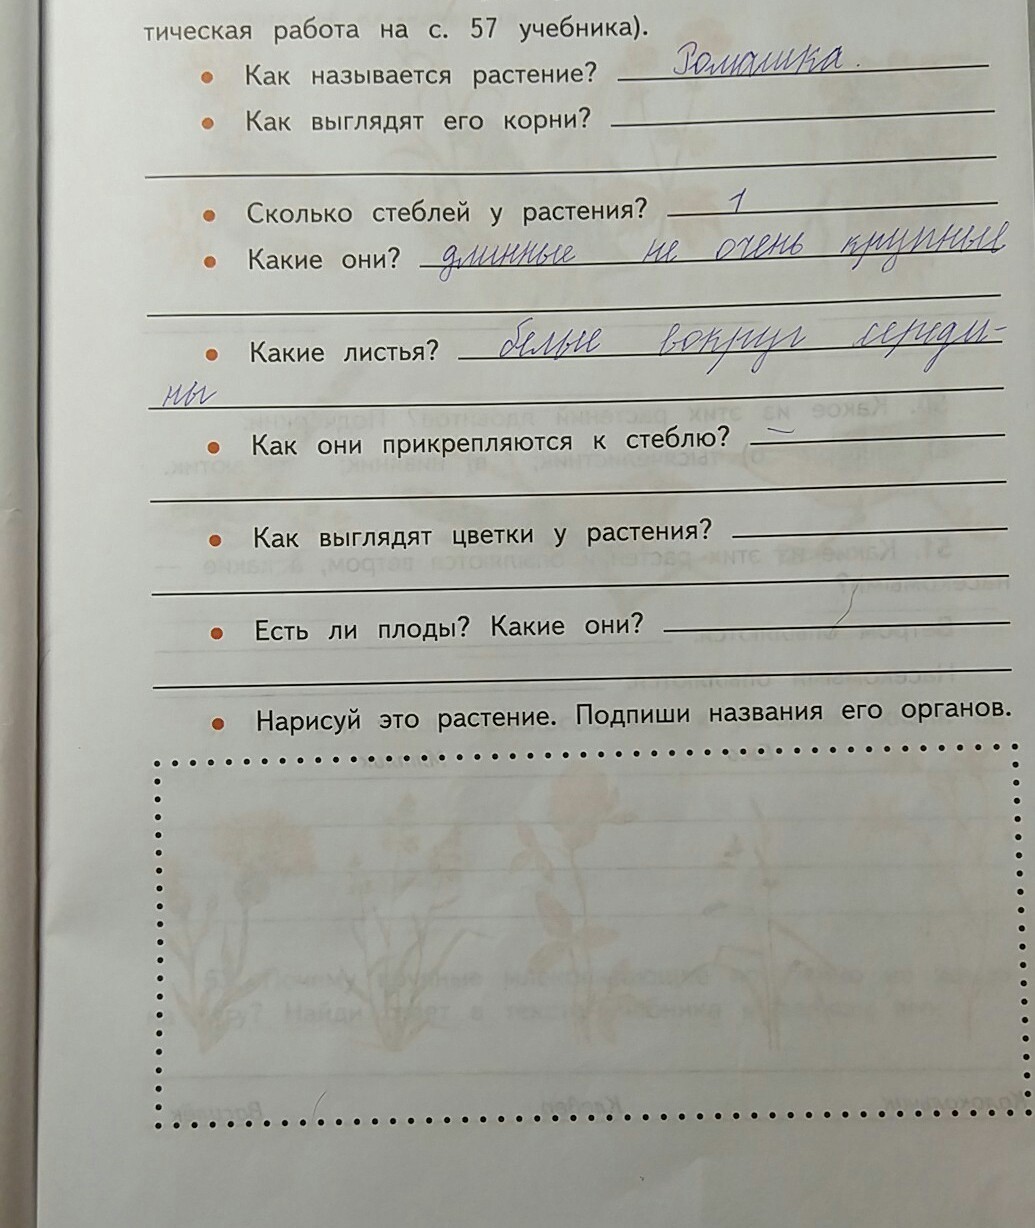 тическая работа на с. 57 учебника).
• Как называется растение? Ромашка.
• Как выглядят его корни?
• Сколько стеблей у растения? 1
• Какие они? длинные не очень крупные
• Какие листья? белые вокруг середи-
ны
• Как они прикрепляются к стеблю? –
• Как выглядят цветки у растения?
• Есть ли плоды? Какие они?
• Нарисуй это растение. Подпиши названия его органов.